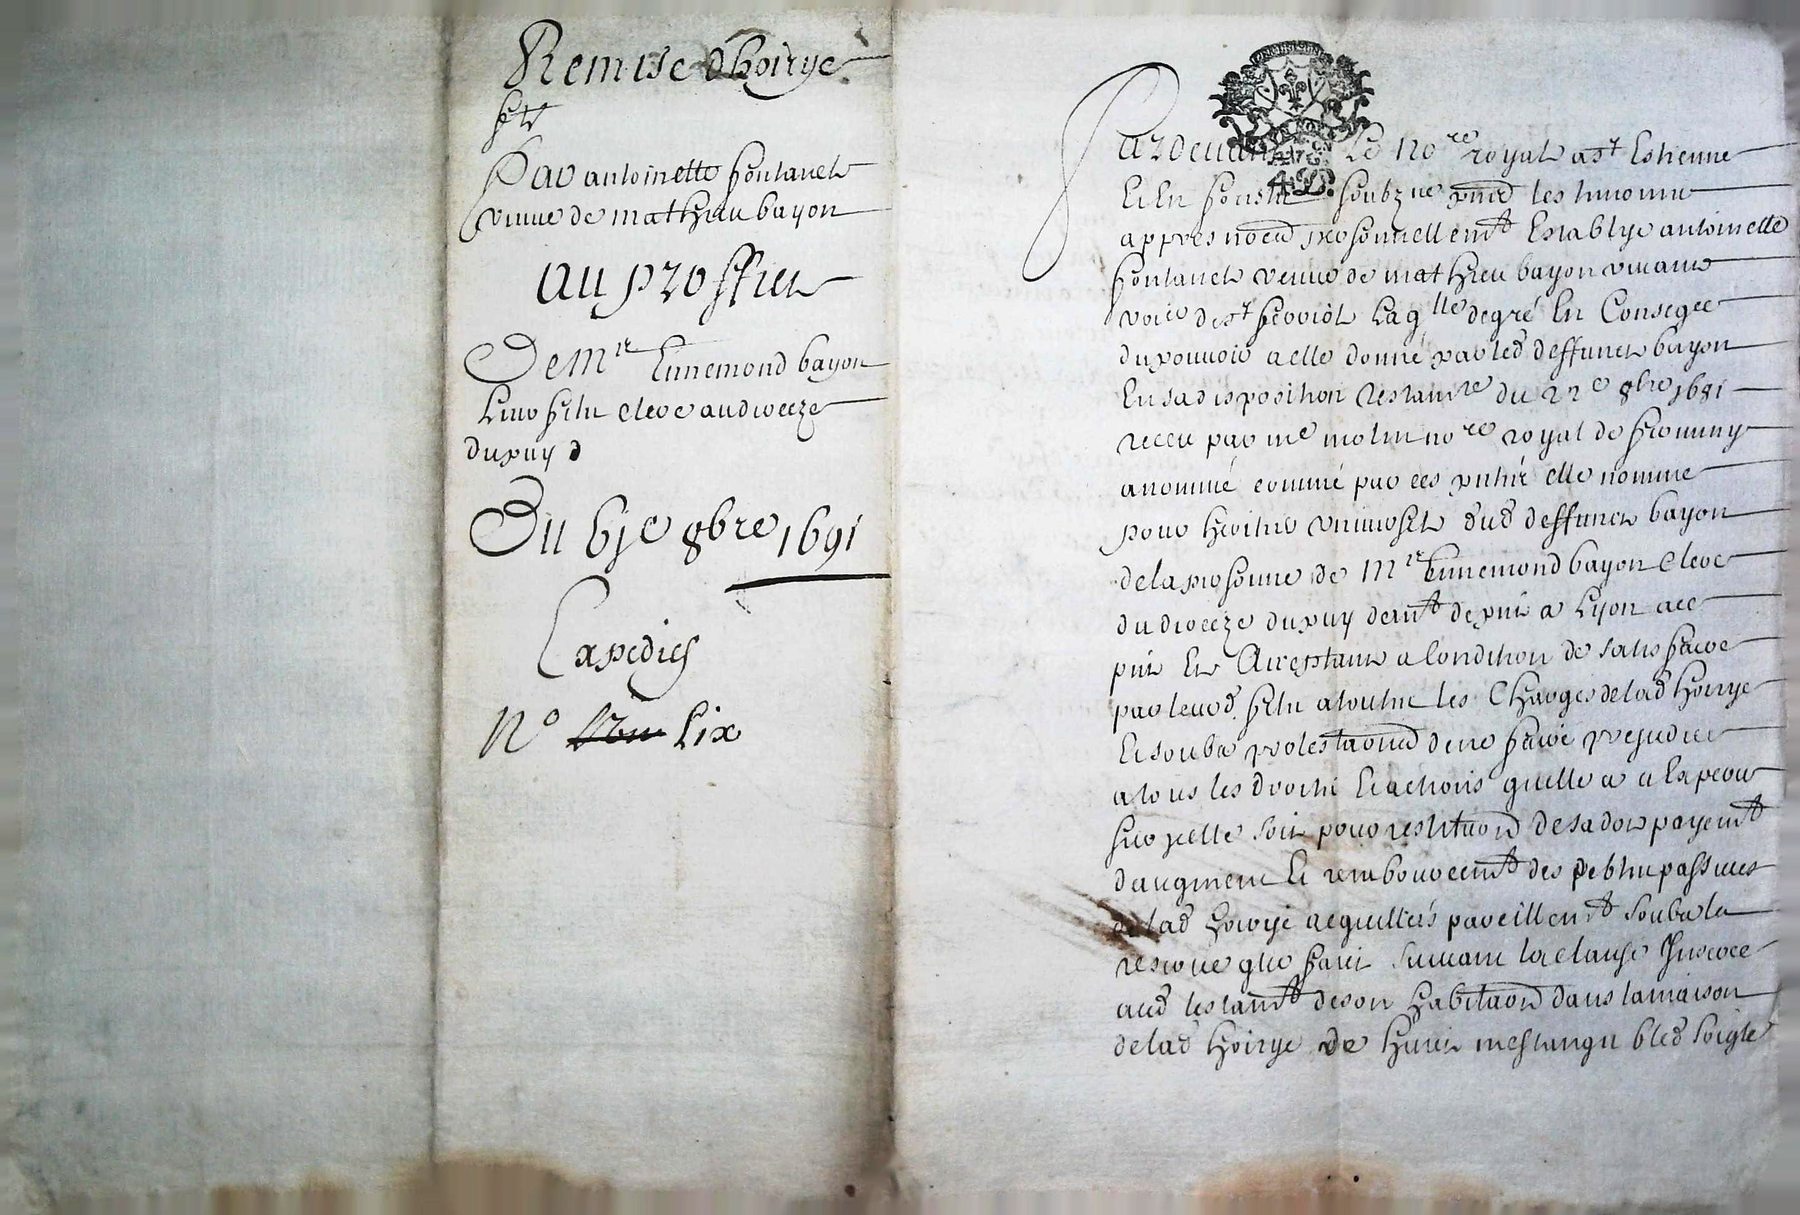 Remise dhoirye
fte
Par antoinette fontanet
veuve de mathieu bayon
au proffict
De Mre Ennemond bayon
Leur filz clerc au dioceze
du puy
Du 6je 8bre 1691
Expedié
No Lix
Pardevant Le nore royal a St Estienne
Et En forestz soubzne pnt les tesmoins
appres nomed personnellemt Establye antoinelle
fontanet veuve de mathieu bayon vivant
voic de St feriol Laqlle de gré En Conseqce
du pouvoir a elle donné par led deffunct bayon
En sa disposition testamre du 22e 8bre 1681
receu par me molin nore royal de firminy
a nommé comme par ces pntes elle nomme
pour heritier universel dud deffunct bayon
de la personne de Mre Ennemond bayon clerc
du dioceze du puy demt de pnt a Lyon ace
pnt Et Acceptant a Condition de satisfaire
par leurd filz a toutes les Charges de lad hoirye
Et soubz protestaond de ne faire prejudice
a tous les droitz Et actions quelle a a Expercer
sur icelle soit pour restituaond de sa dot payemt
daugment Et rembourcemt des debtes passives
de lad hoirye acquittées pareillemt soubz la
reserve que faict suivant la clause Inseree
aud testamt de son habitaond dans la maison
de lad hoirye de huict mestangz bled soigle